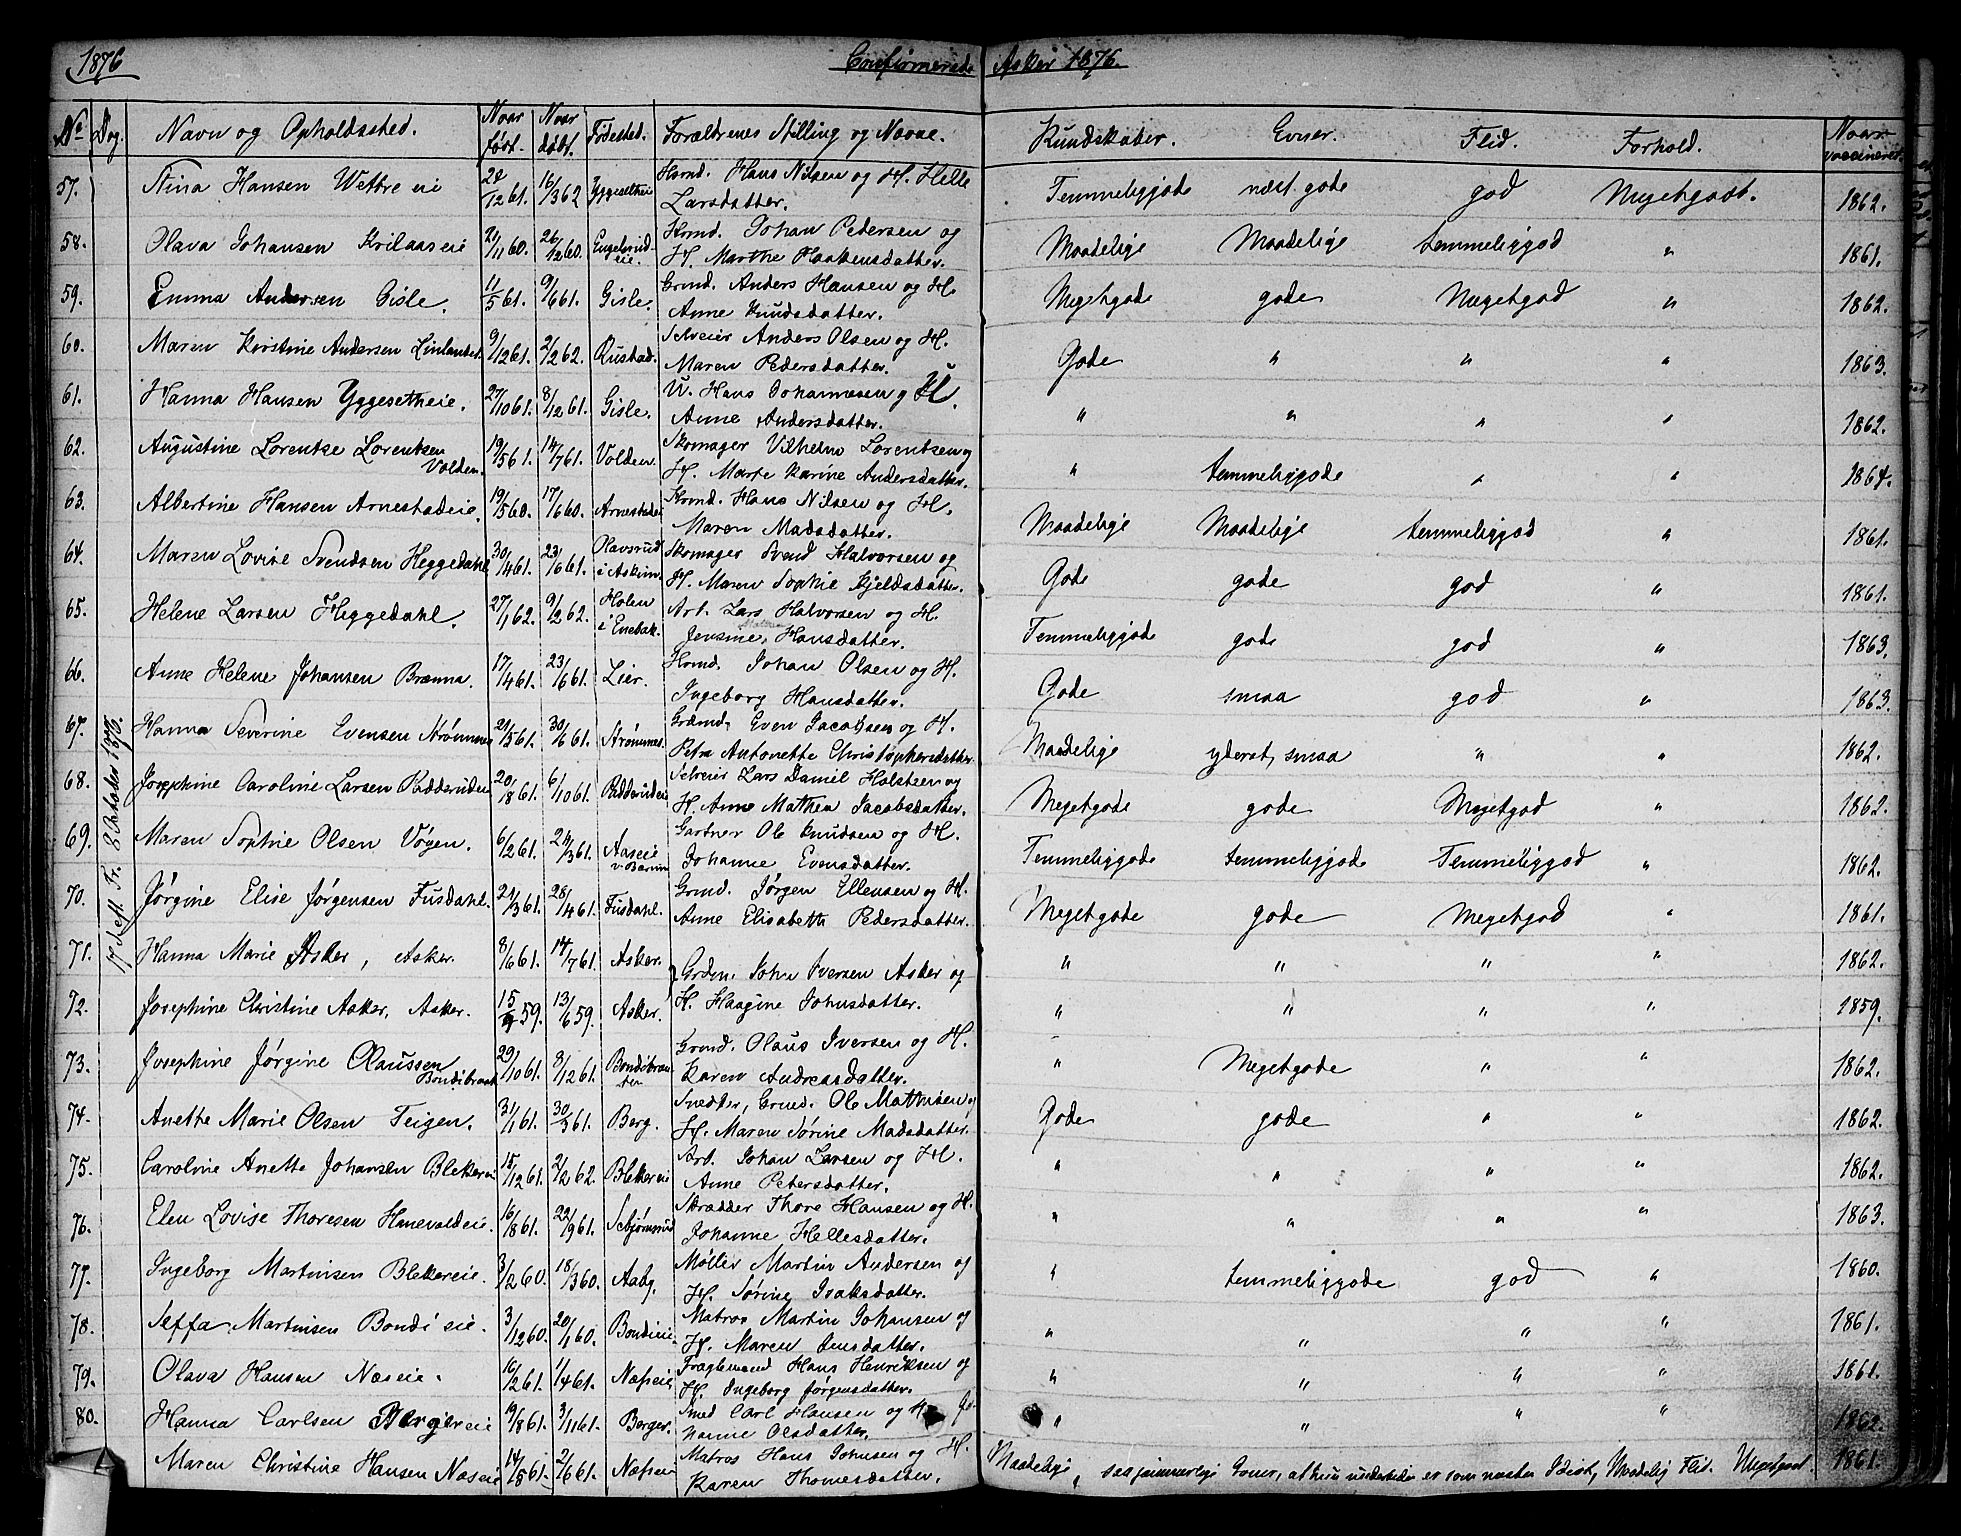 1876 Confirmerede Asker 1876.
No Dag. Navn og Opholdssted. Naar født. Naar døbt. Fødested. Forældrenes Stilling og Navne. Kundskaber. Evner. Flid. Forhold. Naar vaccineret.
17de Sept. Tr. 8 October 1876.
57. Stina Hansen Wettre eie 28/12 61. 16/3 62 Yggesetheie Hsmd. Hans Nilsen og H. Helle Temmeliggode næst. gode god Megetgodt. 1862.
Larsdatter.
58. Olava Johansen Krilaaseie 21/11 60. 26/12 60. Engelsrud eie. Hsmd. Johan Pedersen og Maadelige Maadelige temmeliggod " 1861.
H. Marthe Haakensdatter.
59. Emma Andersen Gisle. 11/5 61. 9/6 61. Gisle. Grmd. Anders Hansen og H. Megetgode gode Megetgod " 1862.
Anne Knudsdatter.
60. Maren Kirstine Andersen Linlandet. 9/12 61. 2/2 62. Rustad. Selveier Anders Olsen og H. Gode " " " 1863.
Maren Pedersdatter.
61. Hanna Hansen Yggesetheie. 27/10 61. 8/12 61. Gisle. U. Hans Johannesen og H. " " " " 1862.
Anne Andersdatter.
62. Augustine Lorentse Lorentsen Volden. 19/5 61. 14/7 61. Volden. Skomager Vilhelm Lorentsen og " temmeliggode " " 1864.
H. Marte Karine Andersdatter.
63. Albertine Hansen Arnestadeie. 19/5 60. 17/6 60. Arnestadeie Hsmd. Hans Nilsen og H. Maadelige Maadelige temmeliggod " 1861.
Maren Madsdatter.
64. Maren Lovise Svendsen Heggedahl 30/4 61. 23/6 61. Olavsrud i Askim. Skomager Svend Halvorsen og Gode gode god " 1861.
H. Maren Sophie Kjeldsdatter.
65. Helene Larsen Heggedahl. 27/1 62. 9/2 62. Holen i Enebak. Arb. Lars Halvorsen og H. Temmeliggode gode god " 1863.
Jensine Hansdatter.
66. Anne Helene Johansen Brænna. 17/4 61. 23/6 61. Lier. Hsmd. Johan Olsen og H. Gode smaa god " 1863.
Ingeborg Hansdatter.
67. Hanna Severine Evensen Strømmen 21/5 61. 30/6 61. Strømmen. Grdmd. Even Jacobsen og H. Maadelige yderst, smaa " " 1862.
Petra Antonette Christophersdatter.
68. Josephine Caroline Larsen Ridderudeie 20/8 61. 6/10 61. Ridderudeie Selveier Lars Daniel Holsteen og Megetgode gode Megetgod " 1862.
H. Anne Mathea Jacobsdatter.
69. Maren Sophie Olsen Vøyen. 6/2 61. 24/3 61. Aaseie v Bærum Gartner Ole Knudsen og H. Temmeliggode temmeliggode Temmeliggod " 1862.
Johanne Evensdatter.
70. Jørgine Elise Jørgensen Fusdahl. 21/3 61. 28/4 61. Fusdahl. Grmd. Jørgen Ellensen og H. Megetgode gode Megetgod " 1861.
Anne Elisabeth Pedersdatter.
71. Hanna Marie Asker, Asker. 8/6 61. 14/7 61. Asker. Grdm. John Iversen Asker og " " " " 1862.
72. Josephine Christine Asker, Asker. 15/4 59. 13/6 59. Asker. H. Haagine Johnsdatter. " " " " 1859.
73. Josephine Jørgine Claussen Bondibraat 29/10 61. 8/12 61. Bondibraaten Grmd. Olaus Iversen og H. " Megetgode " " 1862.
Karen Andreasdatter.
74. Anette Marie Olsen Teigen. 31/1 61. 30/3 61. Berg. Snedker, Grmd. Ole Mathisen og Gode gode " " 1862.
H. Maren Sørine Madsdatter.
75. Caroline Anette Johansen Blekereie 15/12 61. 2/2 62. Blekereie Arb. Johan Larsen og H. " " " " 1862.
Anne Petersdatter.
76. Elen Lovise Thoresen Hanevoldeie. 16/8 61. 22/9 61. Sebjørnsrud Skrædder Thore Hansen og H. " " " " 1863.
Johanne Hellesdatter.
77. Ingeborg Martinsen Blekereie. 3/2 60. 18/3 60. Aaby. Møller Martin Andersen og " temmeliggode god " 1860.
H. Sørine Isaksdatter.
78. Seffa Martinsen Bondi eie. 3/12 60. 20/1 60. Bondieie Matros Martin Johansen og " " " " 1861.
H. Maren Jensdatter.
79. Olava Hansen Næseie. 16/2 61. 1/4 61. Næseie Fragtemand Hans Henriksen og " " " " 1861.
H. Ingeborg Jørgensdatter.
80. Hanna Carlsen Bergereie 19/8 61. 3/11 61. Berger. Smed Carl Hansen og H. Jo- " " " " 1862.
hanne Olsdatter.
Maren Christine Hansen Næseie 14/5 61. 2/6 61. Næseie Matros Hans Johnsen og H. Maadelige, saa jammerlige Evner, at hun undertiden er som næsten Idiot, Maadelig Flid. Megetgodt. 1861.
Karen Thomesdatter.